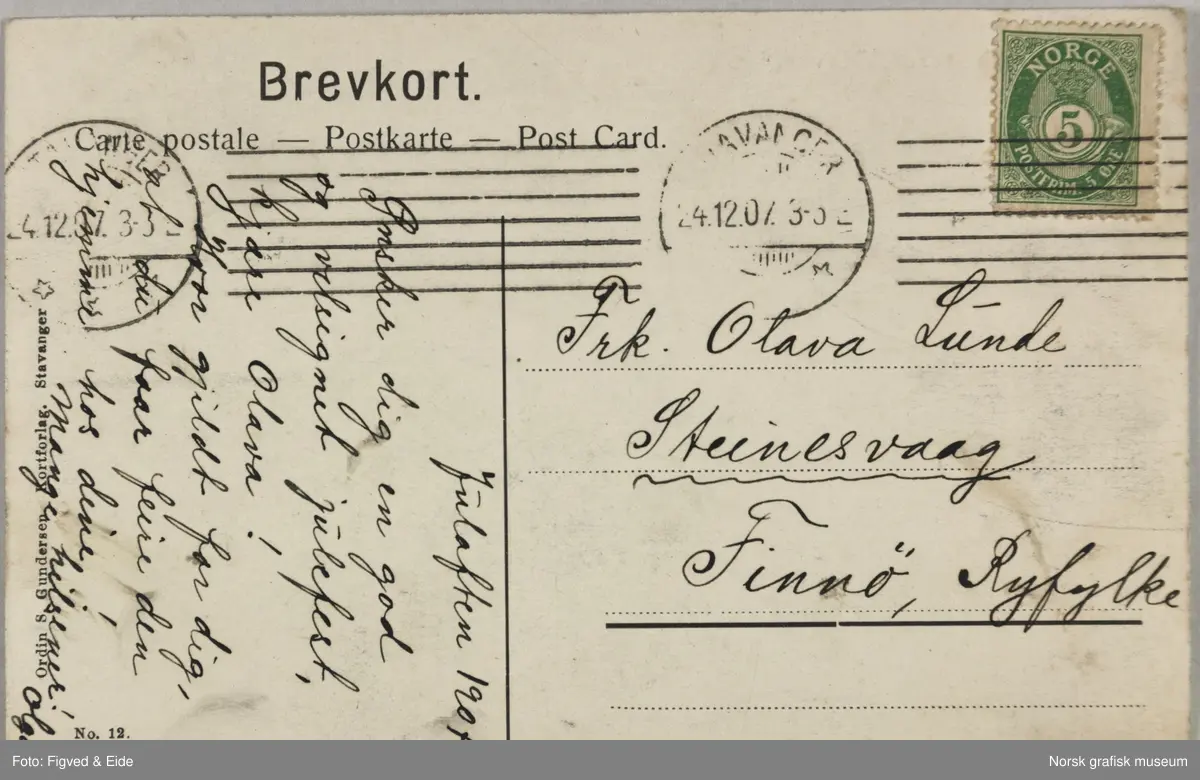 Brevkort.
Carte postale — Postkarte — Post Card.
NORGE
5
POSTFRIM. 5 ØRE
STAVANGER
24.12.07. 3-3 E
STAVANGER
24.12.07. 3-3 E
Julaften 190
Ønsker dig en god
og velsignet julefest,
kjære Olava!
Hvor gjildt for dig,
at du faar feire den
hjemme hos dine!
Mange hilsener!
Olga
Frk. Olava Lunde
Steinesvaag
Finnö, Ryfylke
Ordin S. Gundersen, Kortforlag. Stavanger
No. 12.
Foto: Figved & Eide
Norsk grafisk museum